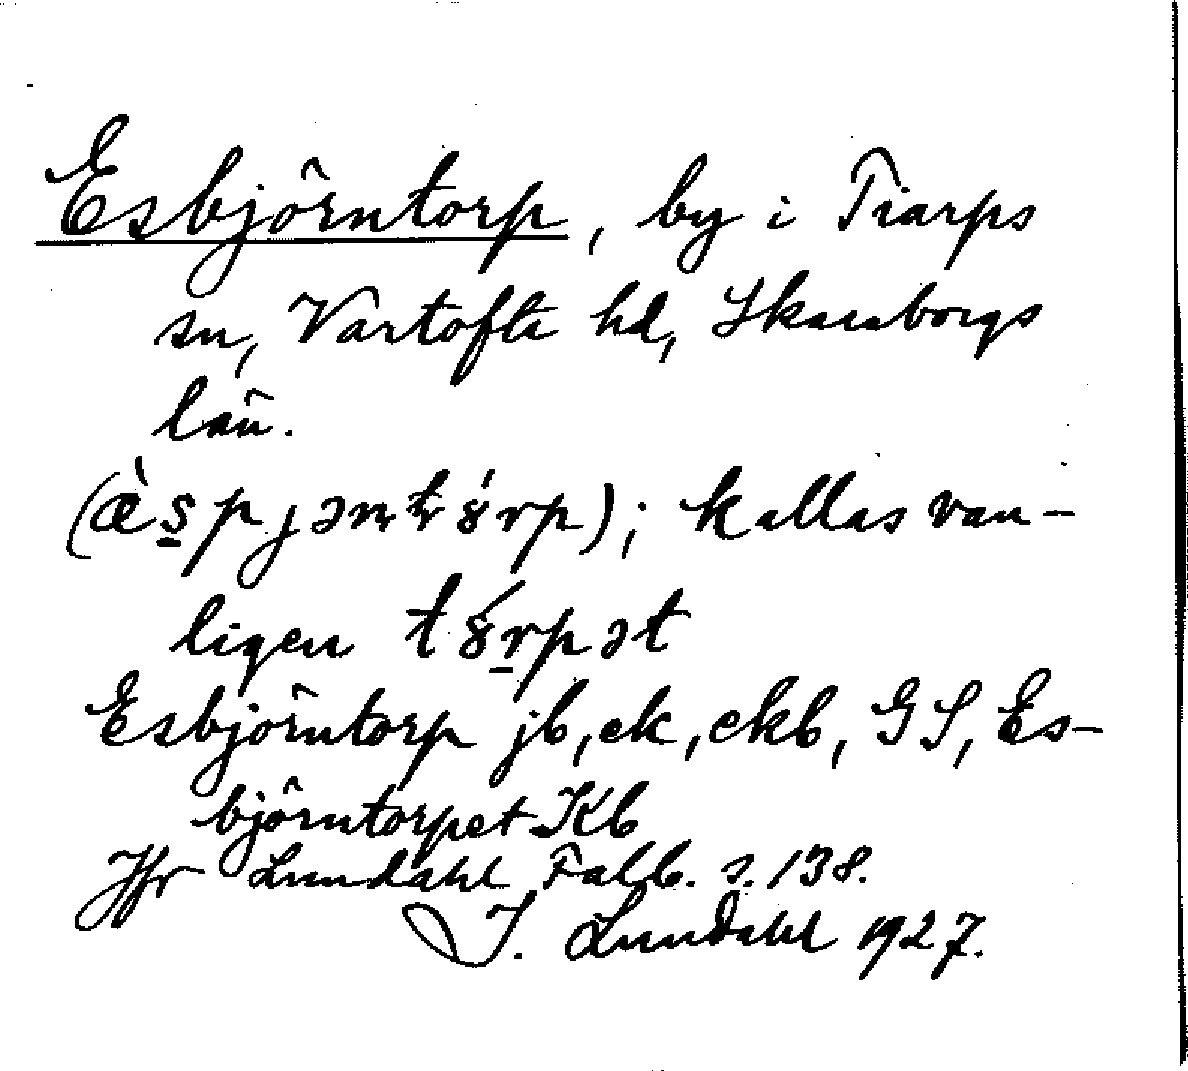 Esbjörntorp, by i Tiarps
sn, Vartofta hd, Skaraborgs
län.
(æ̀s̠pjənt́ɤ́rp); kallas van-
ligen tɤ́r̠pət
Esbjörntorp jb, ek, ekb, GS, Es-
björntorpet Kb
Jfr Lundahl Falb. s. 138.
I. Lundahl 1927.